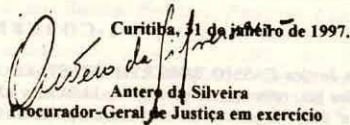 Curitiba, 31 de janeiro de 1997.
Antero da Silveira
Antero da Silveira
Procurador-Geral de Justiça em exercício